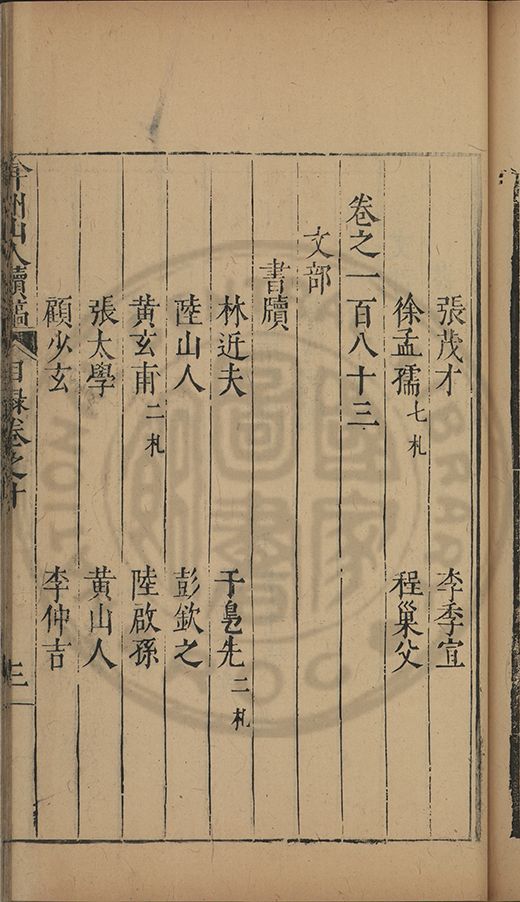 張茂才　李季宣
徐孟孺七札　程巢父
卷之一百八十三
文部
書牘
林近夫　于鳧先二札
陸山人　彭欽之
黄玄甫二札　陸啟孫
張太學　黄山人
顧少玄　李仲吉
弇州山人續稿　目録卷之十　三